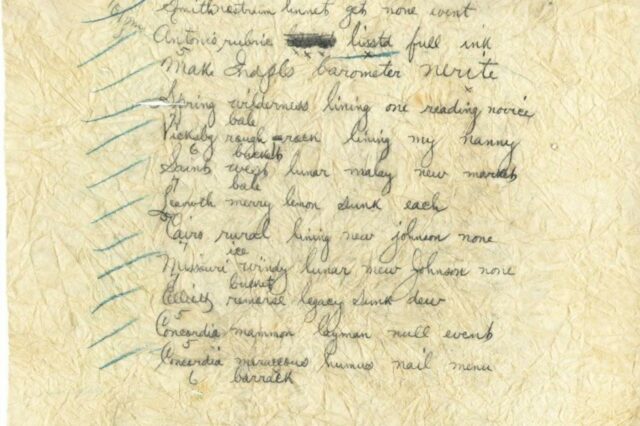 Smith nostrum linnet get none event
Antonio rubric lissta full ink
5
Make Indpls barometer nerite
x
Spring wilderness lining one reading novice
7 bale
Vicksbg rough rack lining my nanny
6 bucket
Saint west lunar malay new market
7 bale
Leawth merry lemon sunk each
5
Cairo rural lining new johnson none
7 ice
Missouri windy lunar new Johnson none
7 bucket
removal legacy sunk dew
5
Concordia mammon layman null events
5
Concordia meraccous humus nail menu
6 barrack